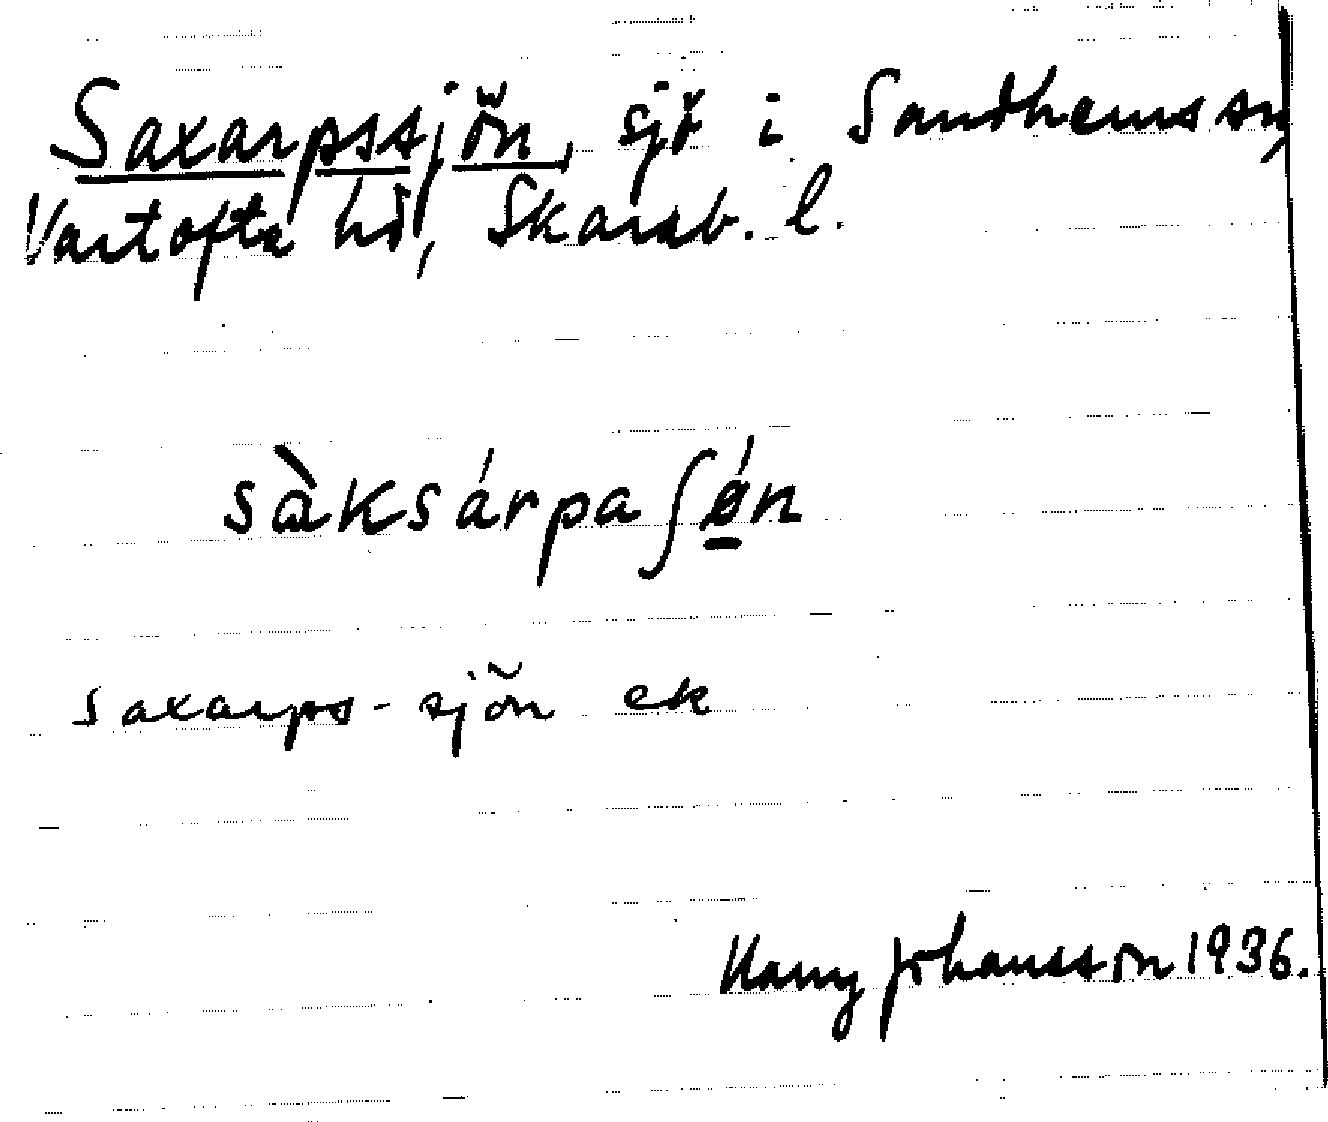 Saxarpssjön, sjö i Sandhems sn,
Vartofta hd, Skarab. l.
sàksárpaʃǿn
Saxarps-sjön ek
Harry Johansson 1936.